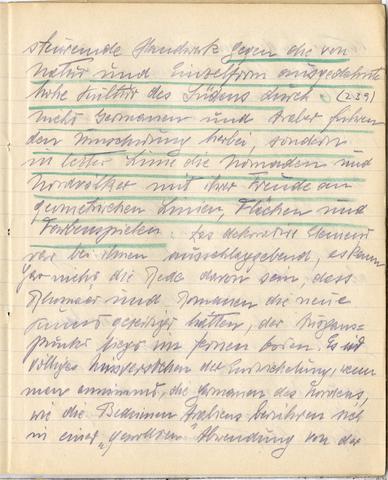 Handwerk gegen die von
Natur und Einzelform ausgedehnte
hohe Kultur des Südens durch. (239)
nicht Germanen und Araber führen
den Umschwung herbei, sondern
in erster Linie die Nomaden und
Nordvölker mit ihrer Freude an
geometrischen Linien, Flächen und
Farbenspielen. Das dekorative Element
war bei ihnen ausschlaggebend, es kann
gar nicht die Rede davon sein, dass
und Romanen die neue
Kunst gezeitigt hätten, der Ausgangs-
punkt liegt im fernen Osten. Es ist
völliges der Entwickelung, wenn
man annimmt, die Germanen des Nordens,
wie die Beduinen Arabiens berühren sich
in einer "gewollten" Abwendung von der